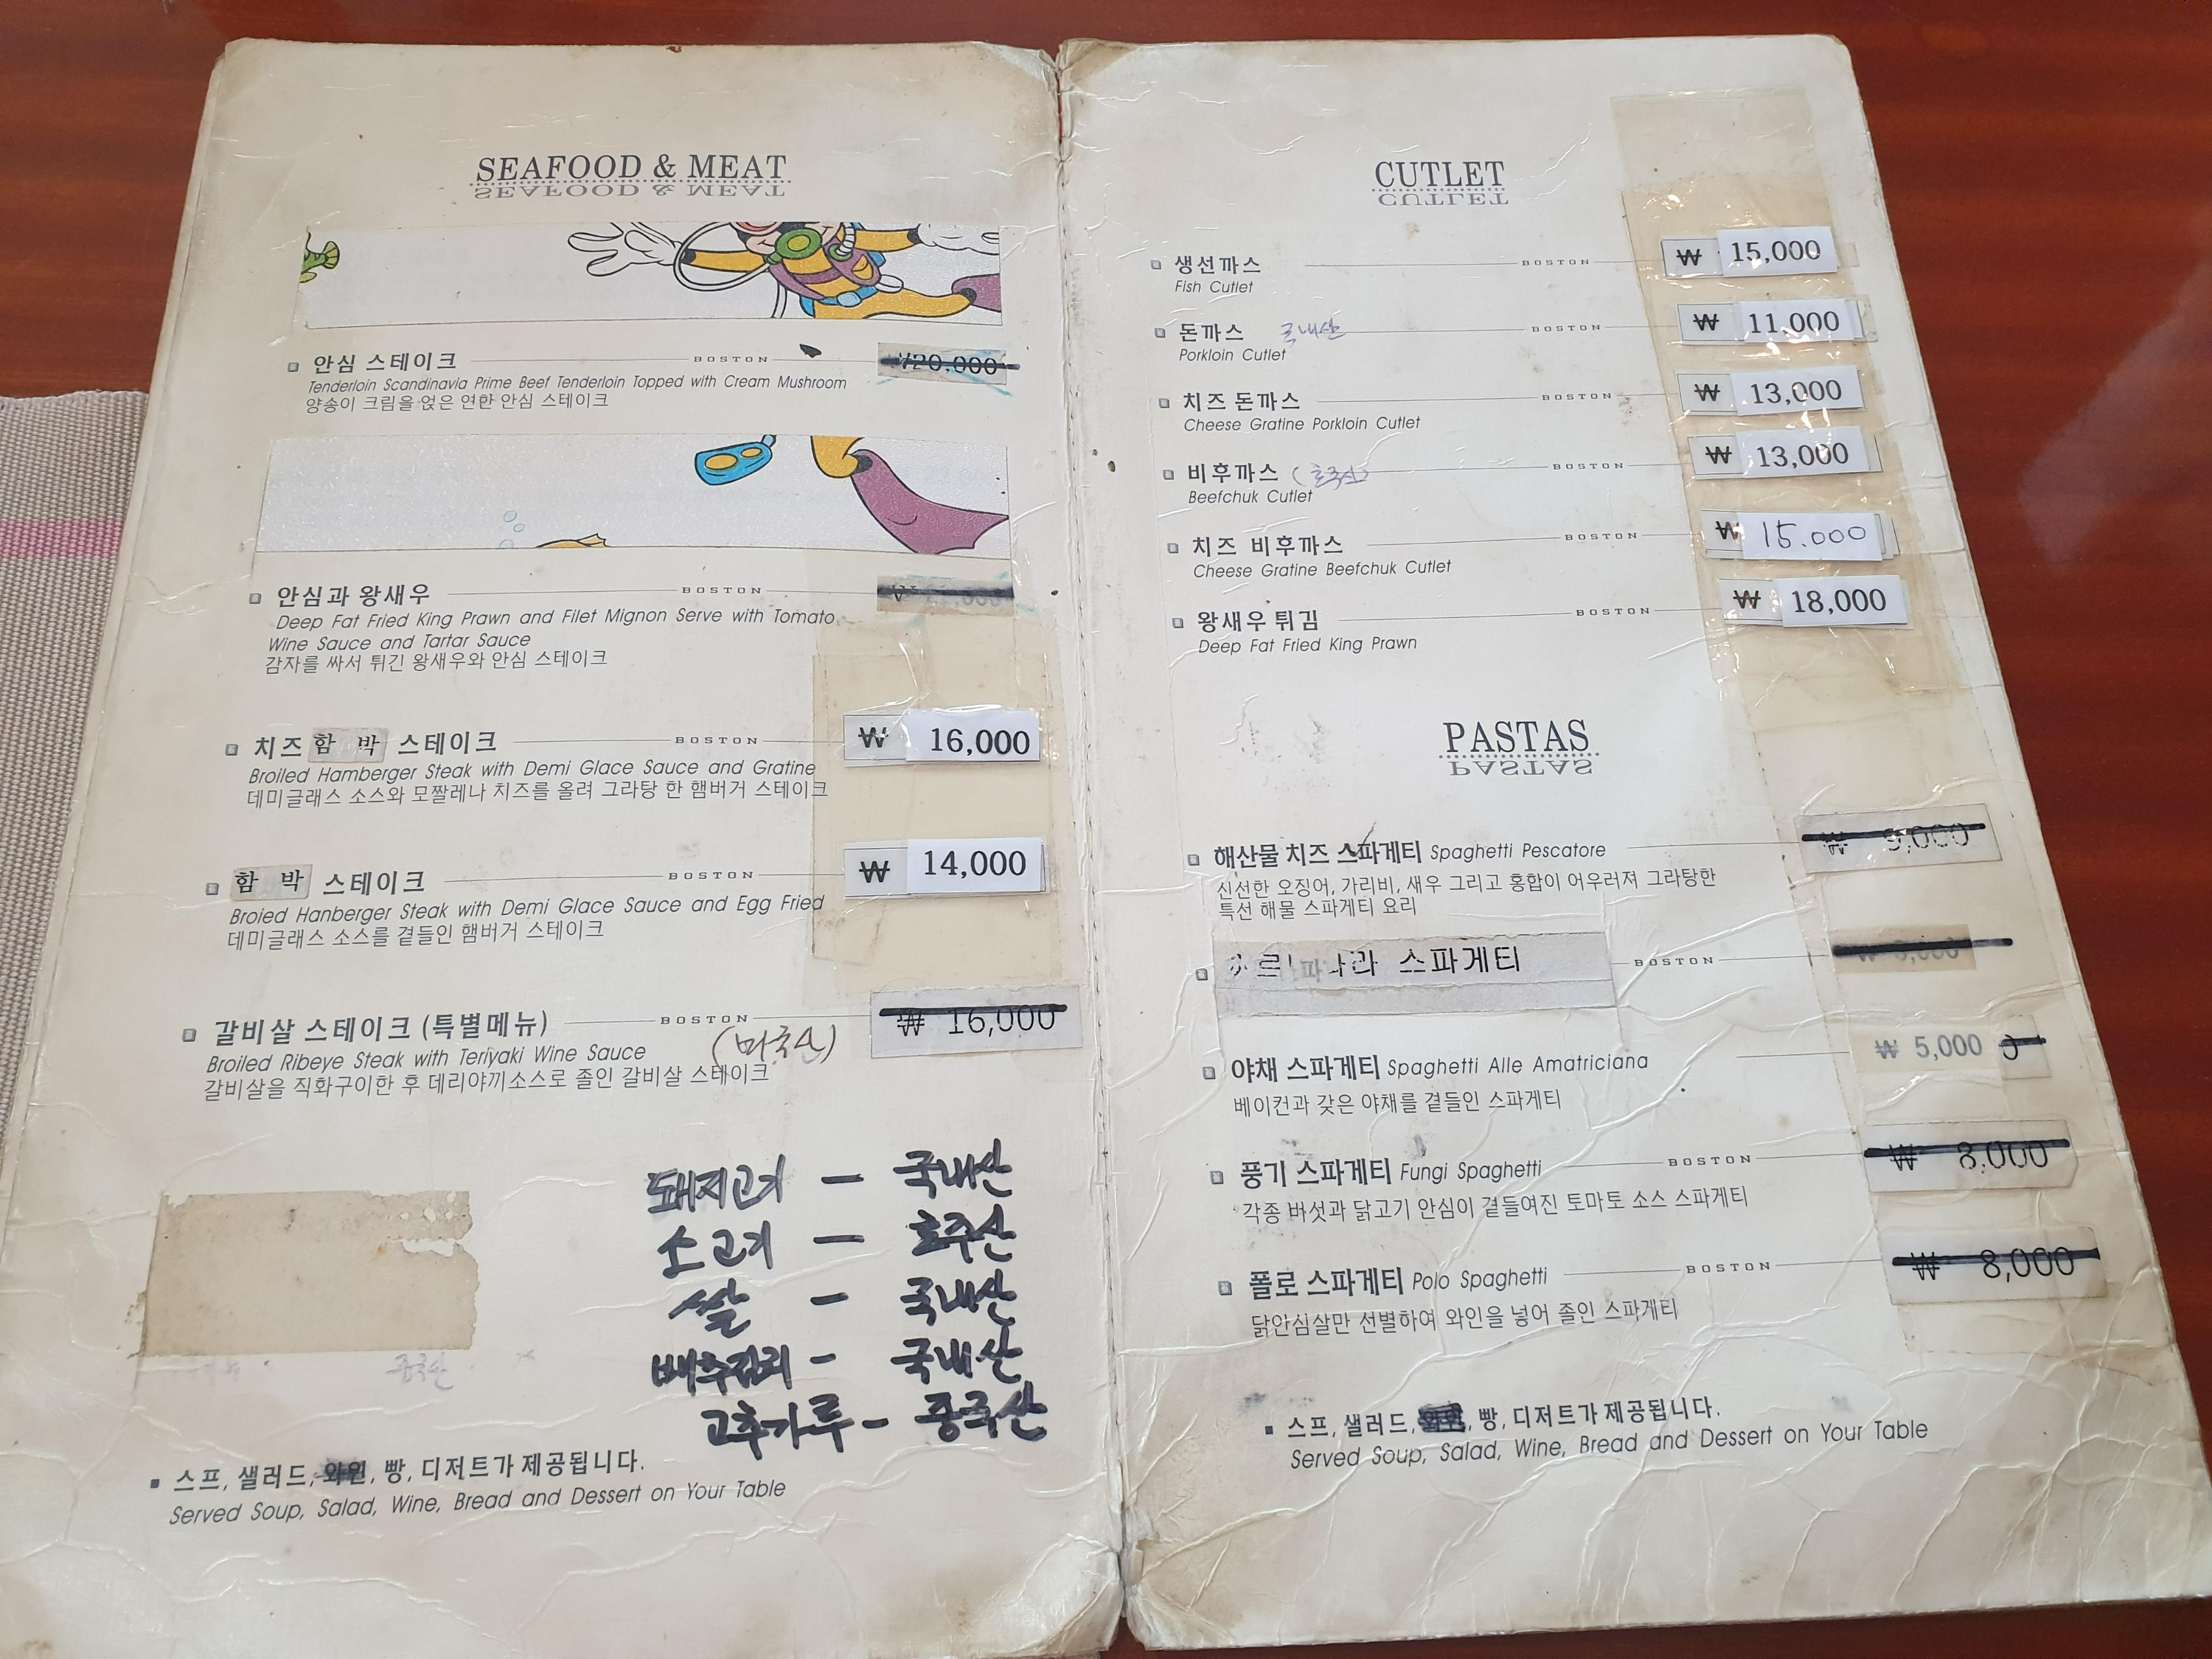 SEAFOOD & MEAT
안심 스테이크 BOSTON ₩20,000
Tenderloin Scandinavia Prime Beef Tenderloin Topped with Cream Mushroom
양송이 크림을 얹은 연한 안심 스테이크
안심과 왕새우 BOSTON
Deep Fat Fried King Prawn and Filet Mignon Serve with Tomato
Wine Sauce and Tartar Sauce
감자를 싸서 튀긴 왕새우와 안심 스테이크
치즈 함 박 스테이크 BOSTON ₩ 16,000
Broiled Hamberger Steak with Demi Glace Sauce and Gratine
데미글래스 소스와 모짤레나 치즈를 올려 그라탕 한 햄버거 스테이크
함 박 스테이크 BOSTON ₩ 14,000
Broied Hanberger Steak with Demi Glace Sauce and Egg Fried
데미글래스 소스를 곁들인 햄버거 스테이크
갈비살 스테이크 (특별메뉴) BOSTON ₩ 16,000
Broiled Ribeye Steak with Teriyaki Wine Sauce
갈비살을 직화구이한 후 데리야끼소스로 졸인 갈비살 스테이크
돼지고기 - 국내산
소고기 - 호주산
쌀 - 국내산
배추김치 - 국내산
고추가루 - 중국산
중국산
스프, 샐러드, 와인, 빵, 디저트가 제공됩니다.
Served Soup, Salad, Wine, Bread and Dessert on Your Table
CUTLET
생선까스 BOSTON ₩ 15,000
Fish Cutlet
돈까스 국내산 BOSTON ₩ 11,000
Porkloin Cutlet
치즈 돈까스 BOSTON ₩ 13,000
Cheese Gratine Porkloin Cutlet
비후까스 (호주산) BOSTON ₩ 13,000
Beefchuk Cutlet
치즈 비후까스 BOSTON ₩ 15.000
Cheese Gratine Beefchuk Cutlet
왕새우 튀김 BOSTON ₩ 18,000
Deep Fat Fried King Prawn
PASTAS
해산물 치즈 스파게티 Spaghetti Pescatore ₩ 9,000
신선한 오징어, 가리비, 새우 그리고 홍합이 어우러져 그라탕한
특선 해물 스파게티 요리
스파게티 BOSTON
야채 스파게티 Spaghetti Alle Amatriciana ₩ 5,000
베이컨과 갖은 야채를 곁들인 스파게티
풍기 스파게티 Fungi Spaghetti BOSTON ₩ 8,000
각종 버섯과 닭고기 안심이 곁들여진 토마토 소스 스파게티
폴로 스파게티 Polo Spaghetti BOSTON ₩ 8,000
닭안심살만 선별하여 와인을 넣어 졸인 스파게티
스프, 샐러드, 와인, 빵, 디저트가 제공됩니다.
Served Soup, Salad, Wine, Bread and Dessert on Your Table